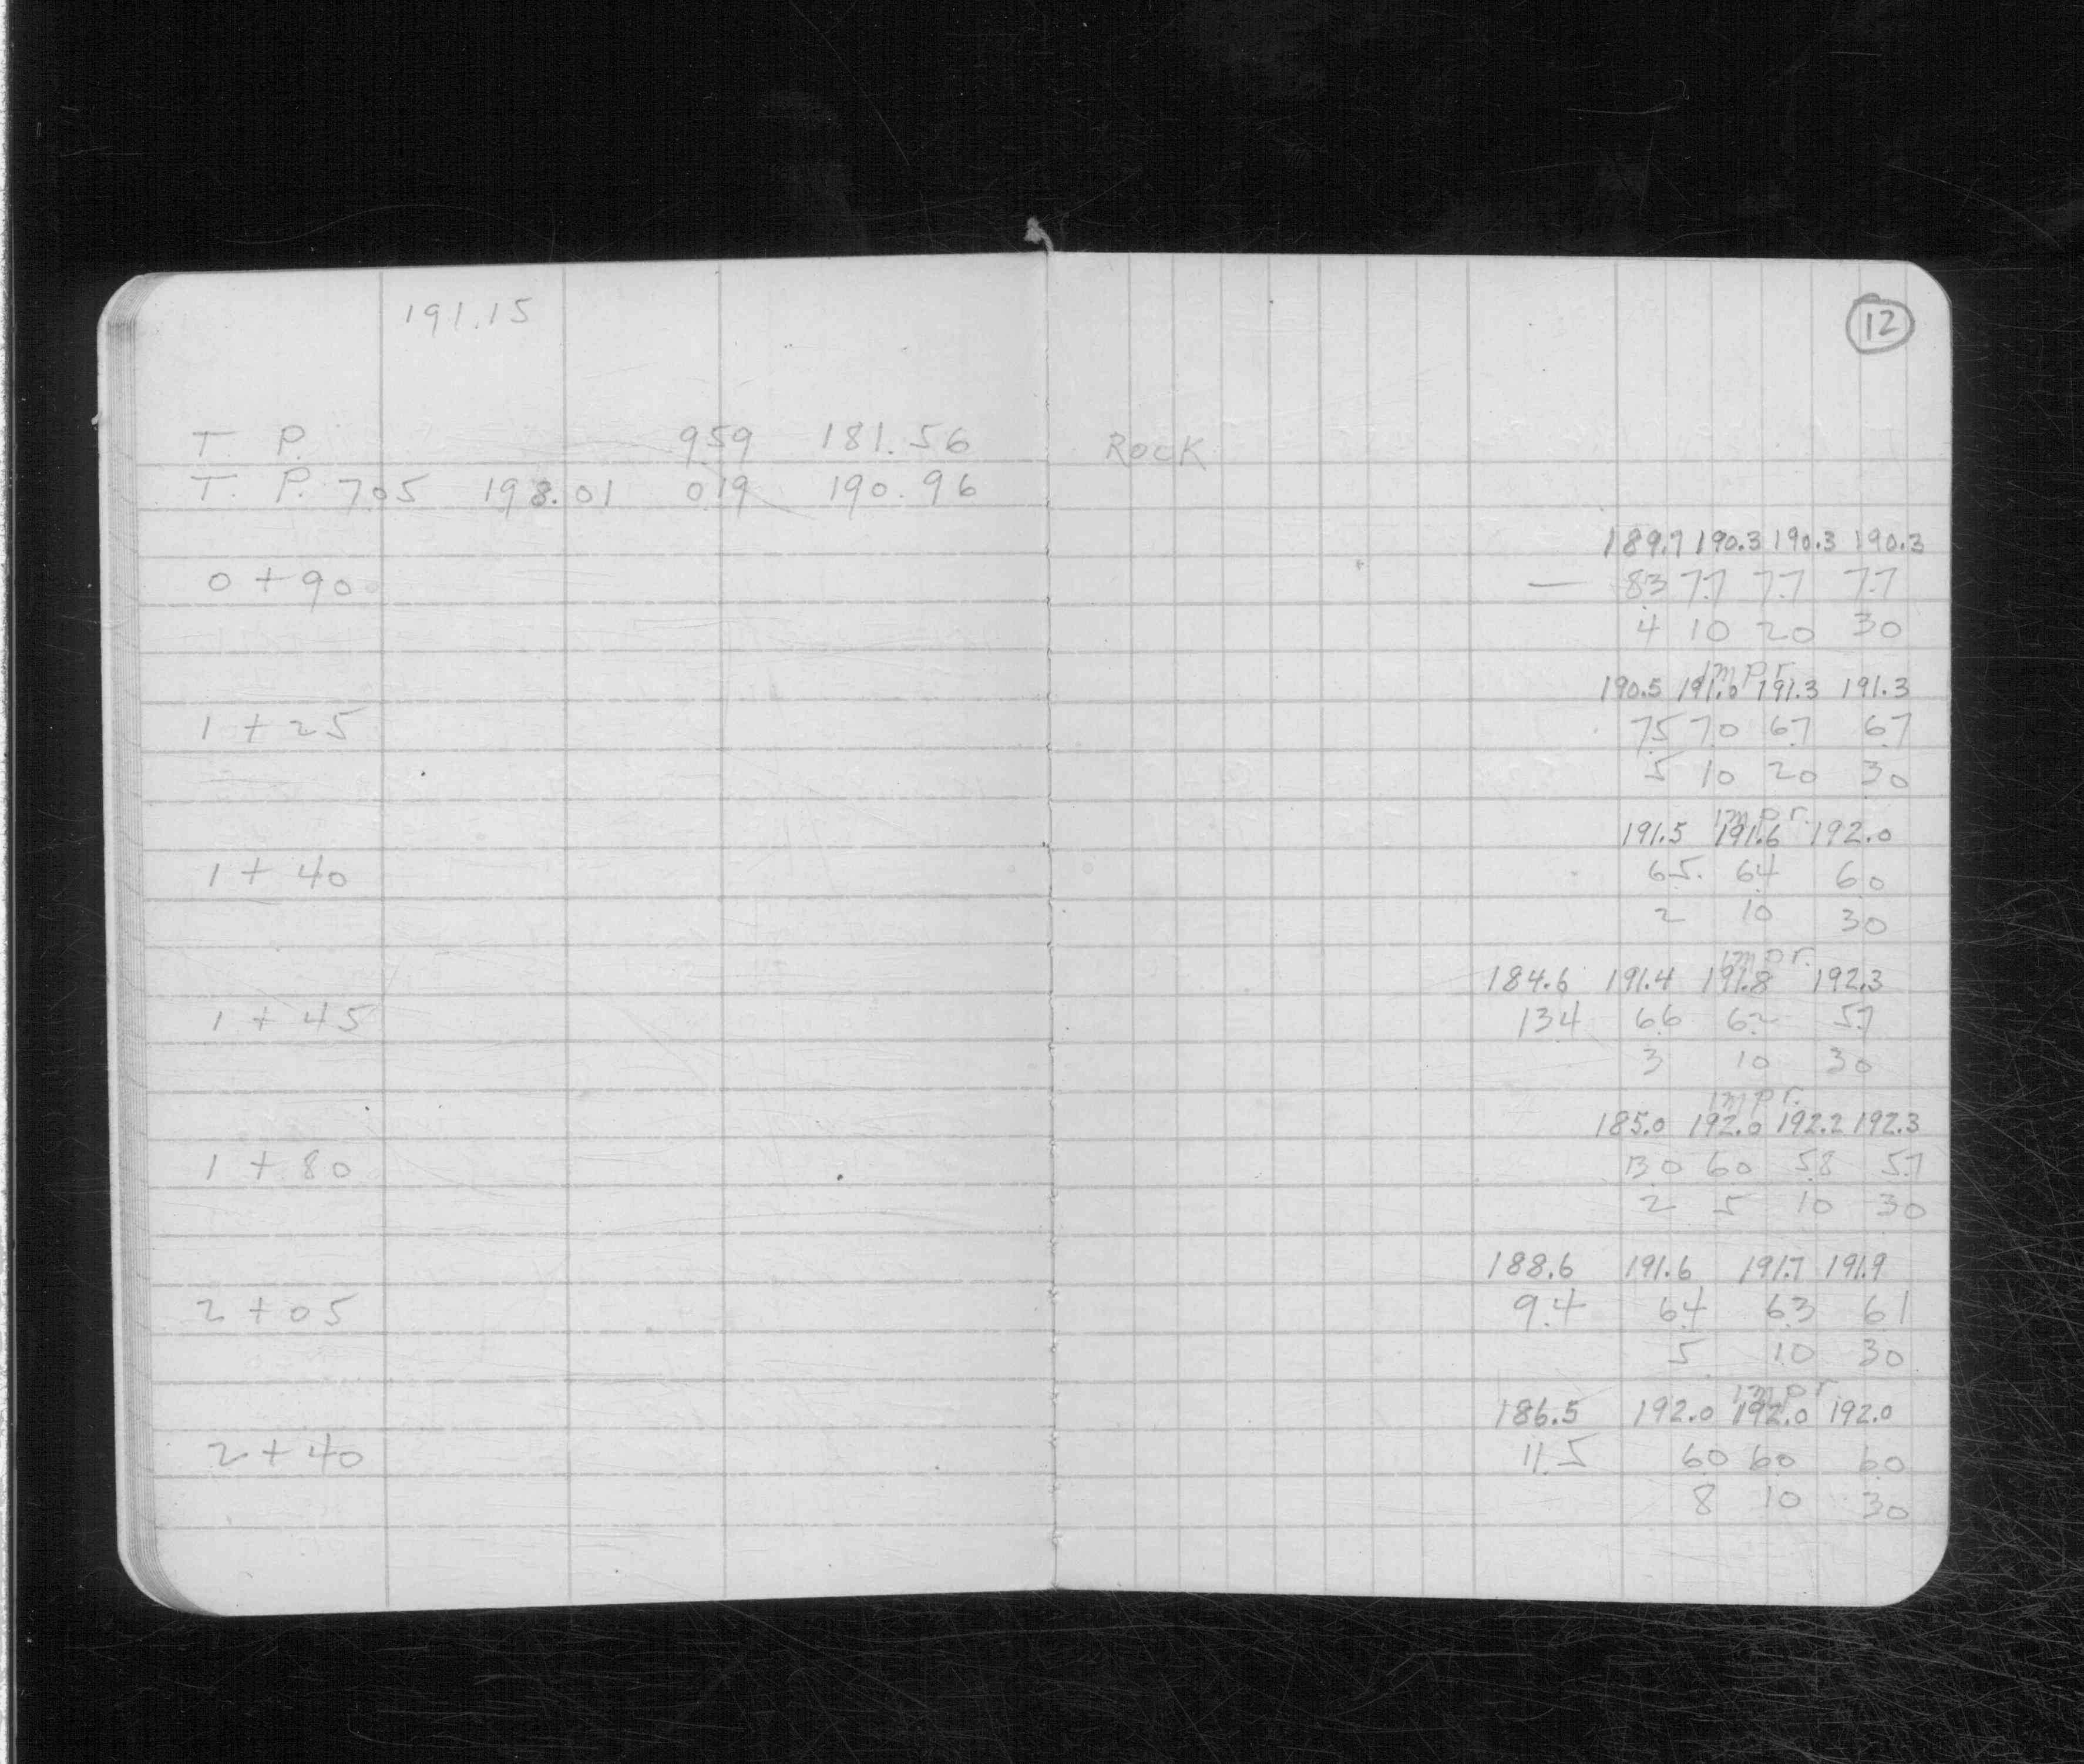 191.15
12
T. P. 9.59 181.56 Rock
T. P. 7.05 198.01 0.19 190.96
189.7 190.3 190.3 190.3
0+90 — 8.3 7.7 7.7 7.7
4 10 20 30
Impr.
190.5 191.0 191.3 191.3
1+25 7.5 7.0 6.7 6.7
5 10 20 30
Impr.
191.5 191.6 192.0
1+40 6.5 6.4 6.0
2 10 30
Impr.
184.6 191.4 191.8 192.3
1+45 13.4 6.6 6.2 5.7
3 10 30
Impr.
185.0 192.0 192.2 192.3
1+80 13.0 6.0 5.8 5.7
2 5 10 30
188.6 191.6 191.7 191.9
2+05 9.4 6.4 6.3 6.1
5 10 30
Impr.
186.5 192.0 192.0 192.0
2+40 11.5 6.0 6.0 6.0
8 10 30